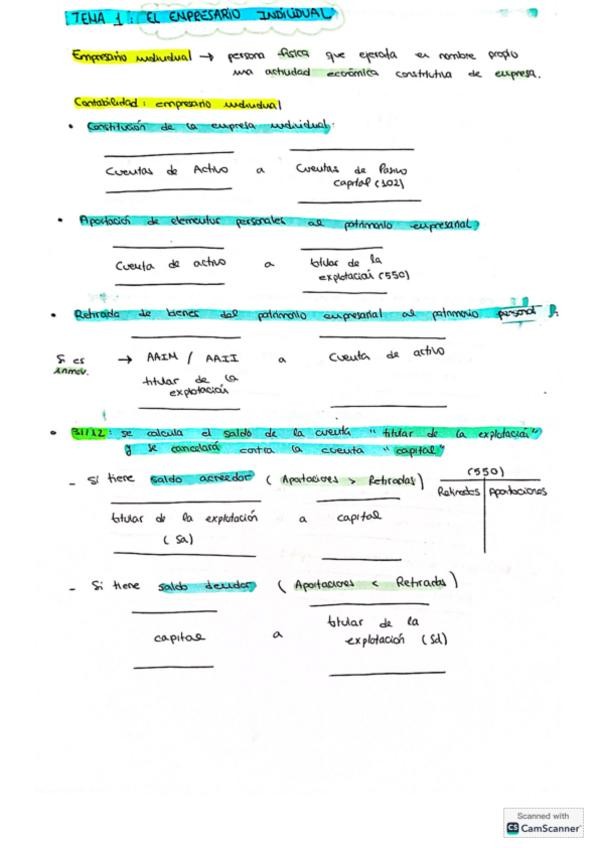 TEMA 1: EL EMPRESARIO INDIVIDUAL
Empresario individual → persona física que ejercita en nombre propio
una actividad económica constitutiva de empresa.
Contabilidad: empresario individual
• Constitución de la empresa individual:
Cuentas de Activo a Cuentas de Pasivo
capital (102)
• Aportación de elementos personales al patrimonio empresarial
Cuenta de activo a titular de la
explotación (550)
• Retirada de bienes del patrimonio empresarial al patrimonio personal
Si es → AAIM / AAII a Cuenta de activo
inmov. titular de la
explotación
• 31/12: se calcula el saldo de la cuenta "titular de la explotación"
y se cancelará contra la cuenta "capital"
- Si tiene saldo acreedor (Aportaciones > Retiradas) (550)
Retiradas Aportaciones
titular de la explotación a capital
(Sa)
- Si tiene saldo deudor (Aportaciones < Retiradas)
capital a titular de la
explotación (Sd)
Scanned with
CS CamScanner